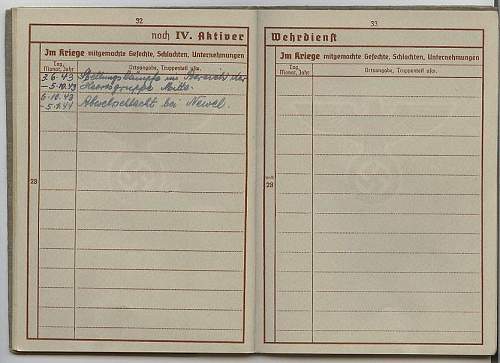 32
noch IV. Aktiver
Im Kriege mitgemachte Gefechte, Schlachten, Unternehmungen
Tag, Monat, Jahr
Ortsangabe, Truppenteil usw.
3.6.43 Stellungskämpfe im Bereich der
– 5.10.43 Heeresgruppe Mitte.
6.10.43 Abwehrschlacht bei Newel.
28
33
Wehrdienst
Im Kriege mitgemachte Gefechte, Schlachten, Unternehmungen
Tag, Monat, Jahr
Ortsangabe, Truppenteil usw.
28